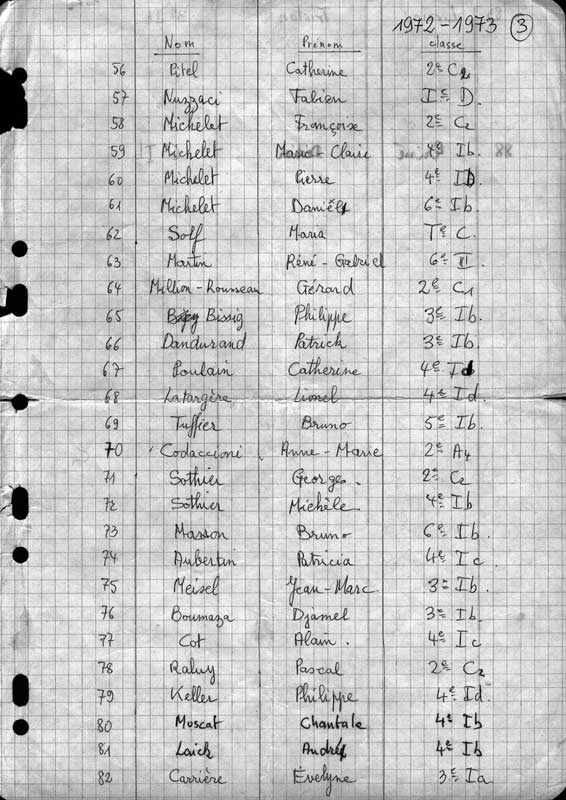 1972-1973 3
Nom Prénom classe
56 Pitel Catherine 2e C2
57 Nuzzaci Fabien Ie D.
58 Michelet Françoise 2e C2
59 Michelet Marie-Claire 4e Ib.
60 Michelet Pierre 4e Ib
61 Michelet Danièl 6e Ib.
62 Solf Maria Te C.
63 Martin Réné-Gabriel 6e II.
64 Million-Rousseau Gérard 2e C1
65 Bissig Philippe 3e Ib.
66 Dandurand Patrick 3e Ib.
67 Poulain Catherine 4e Id
68 Latargère Lionel 4e Id.
69 Tuffier Bruno 5e Ib.
70 Codaccioni Anne-Marie 2e A4
71 Sothier Georges. 2e C2
72 Sothier Michèle 4e Ib
73 Masson Bruno 6e Ib.
74 Aubertin Patricia 4e Ic
75 Meisel Jean-Marc. 3e Ib.
76 Boumaza Djamel 3e Ib.
77 Cot Alain. 4e Ic
78 Raluy Pascal 2e C2
79 Keller Philippe 4e Id.
80 Muscat Chantale 4e Ib
81 Laick André 4e Ib
82 Carrière Évelyne 3e Ia